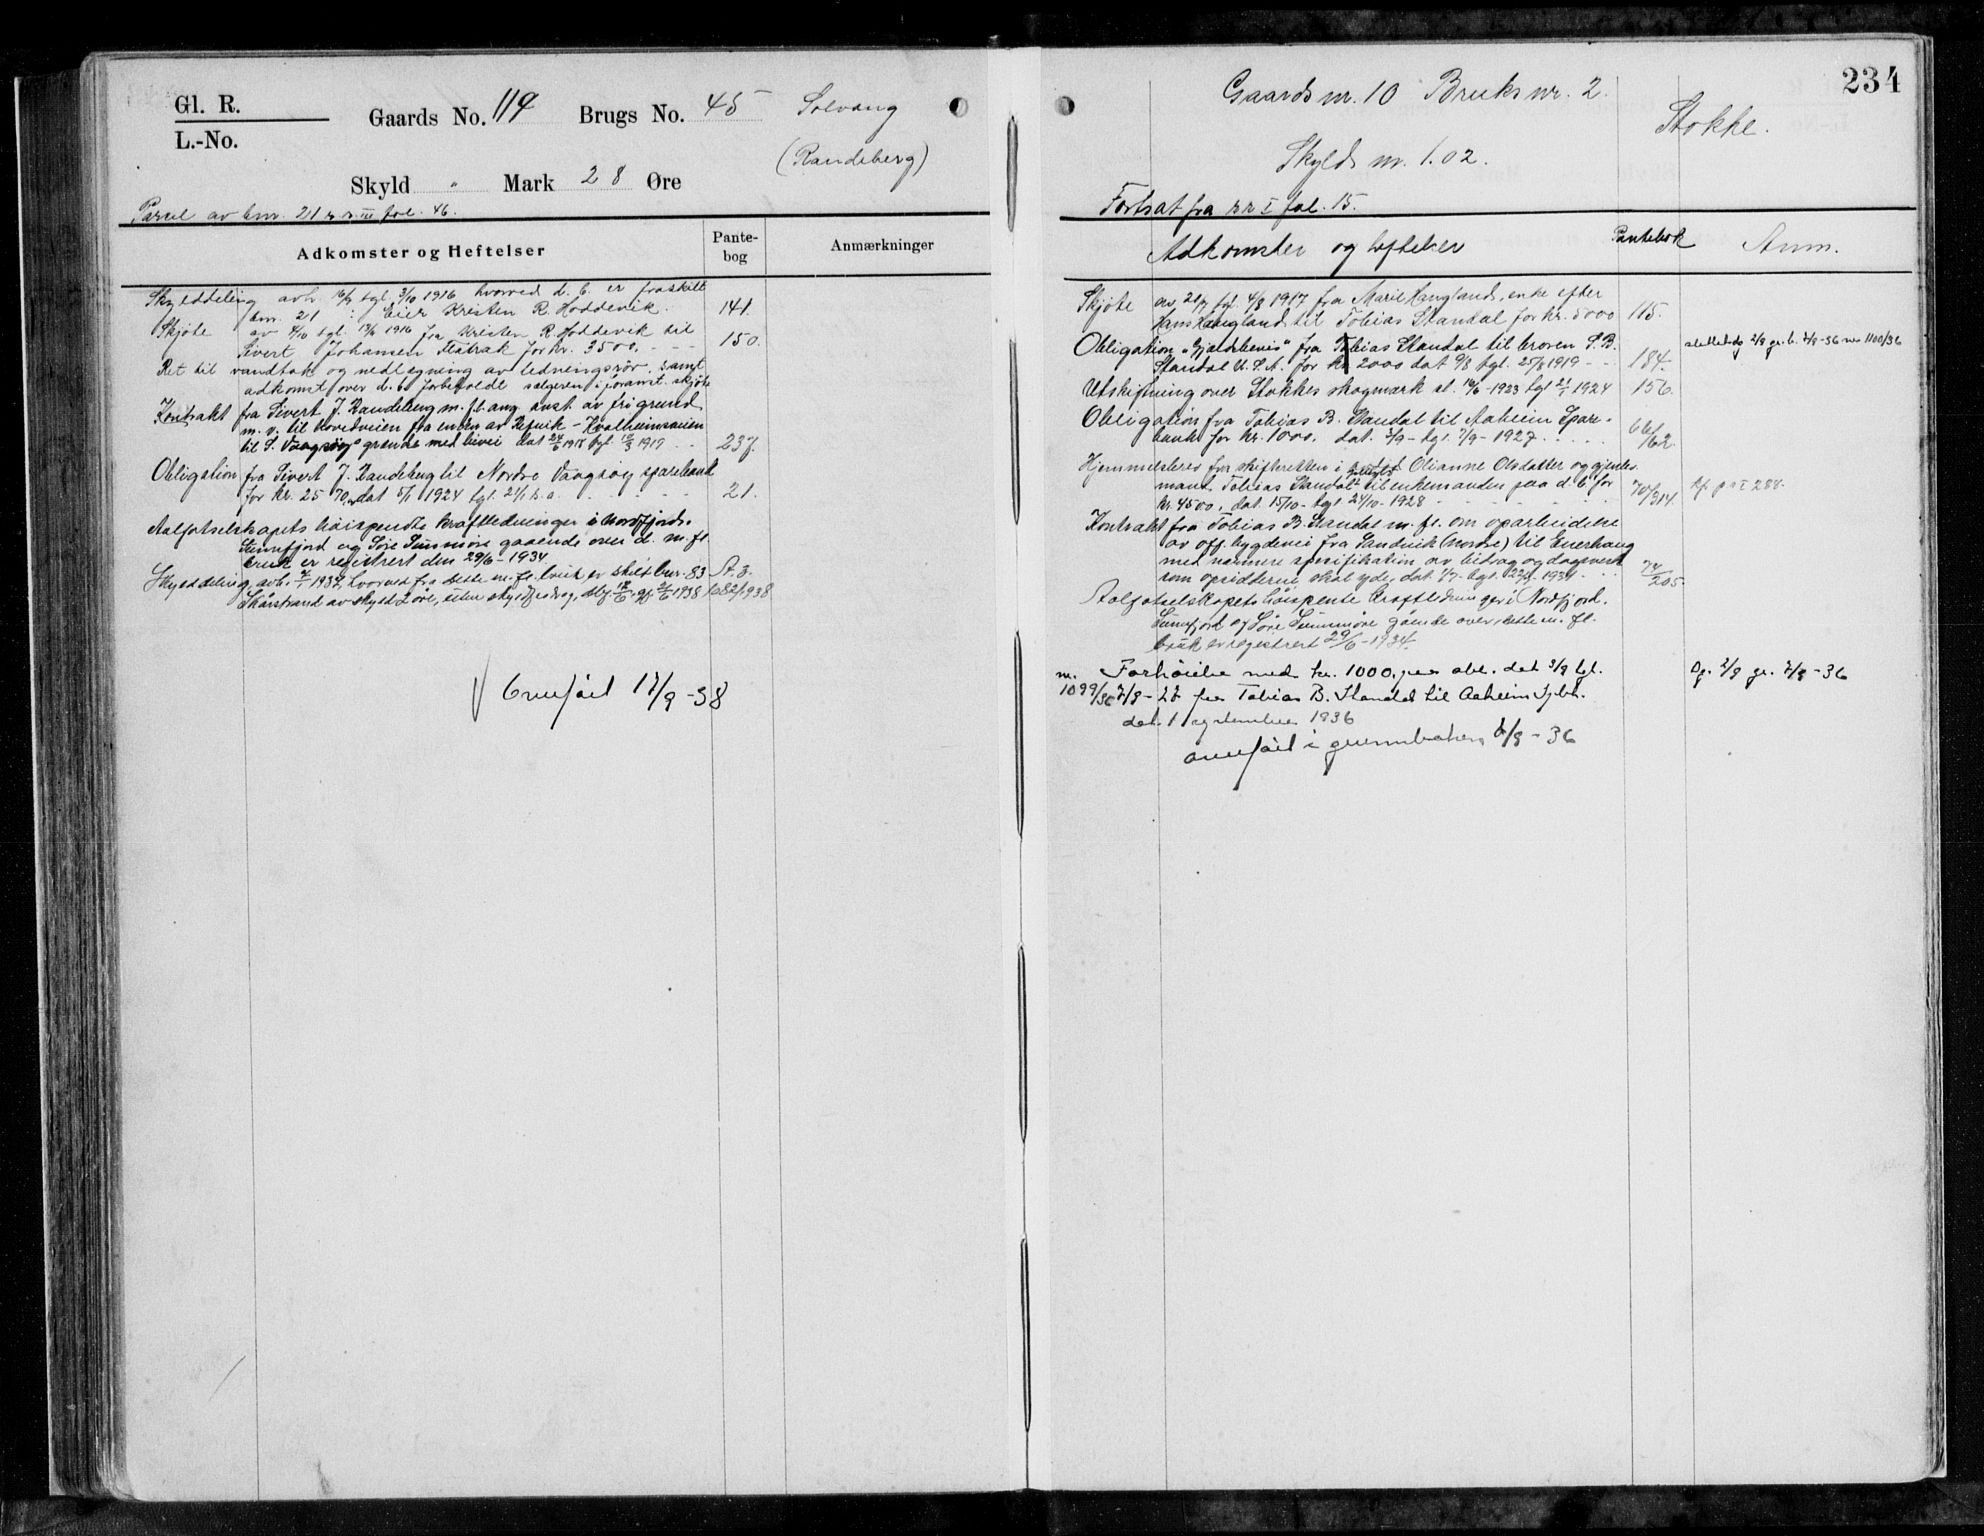 Gl. R.
L.-No.
Gaards No. 119 Brugs No. 45 Solvang
(Randeberg)
Skyld " Mark 28 Øre
Parcel av bnr. 21 r. r. III fol. 46.
Adkomster og Heftelser
Pante-
bog
Anmærkninger
Skylddeling avh. tgl. 3/10 1916 hvorved d. b. er fraskilt
bnr. 21 : Eier Kristen R. Hoddevik. 141.
Skjøte av 4/10 tgl. 1916 fra Kristen R. Hoddevik til
Sivert Johansen Flatrak for kr. 3500. - - - 150.
Ret til vandtak og nedlægning av ledningsrør, samt
adkomst over d. b. forbeholdt sælgeren i foranst. skjøte
Kontrakt fra Sivert J. Randeberg m. fl. ang. avst. av fri grund
m. v. til hovedveien fra enden av Refvik - Kvalheimsveien
til S. Vaagsøy grænde med bivei dat 1917 tgl. 1919 - - 237.
Obligation fra Sivert J. Randeberg til Nordre Vaagsøy sparebank
for kr. 25 70, dat 5/1 1924 tgl. 21/1 s. a. 21.
Aalfotselskapets høispendte kraftledninger i Nordfjord.
Sunnfjord og Søre Sunnmøre gaaende over d. m. fl.
bruk er registrert den 29/6 - 1934.
Skylddeling avh. 1937, hvorved fra dette m. fl. bruk er skilt bnr. 83
Skårstrand av skyld 2 øre, 1938 682/1938
Overført 17/9 - 38
234
Gaards nr. 10 Bruks nr. 2.
Stokke.
Skyld m. 1.02.
Fortsat fra r r I fol. 15.
Adkomster og heftelser
Pantebok
Anm.
Skjøte av 21/7 tgl. 4/8 1917 fra Marie Haugland, enke efter
Hans Haugland til Tobias Standal for kr. 5000 115.
Obligation "Gjældsbevis" fra Tobias Standal til broren S. B.
Standal U. S. A. for kr. 2000 dat 9/8 tgl. 25/8 1919 - - 184.
Utskiftning over Stokkes skogmark sl. 16/6 - 1923 tgl 2/1 1924 156.
Obligation fra Tobias B. Standal til Aaheim Spare-
bank for kr. 1000. dat. 3/9 - tgl. 7/9 - 1927. 66/62
Hjemmelsbrev fra skifteretten i Olianne Olsdatter og gjenlev.
mand Tobias Standal til enkemanden paa d. b. for
kr. 4500, dat. 15/10 - tgl 24/10 - 1928 70/314. 288.
Kontrakt fra Tobias B. Standal m. fl. om oparbeidelse
av off. bygdevei fra Sandvik (nordre) til Enerhaug
med nærmere spesifikation av bidrag og dagsverk
som opsidderne skal yde, dat. 1/7 - tgl. 1934. 74/205.
Aalfotselskapets høispente kraftledninger i Nordfjord.
Sunnfjord og Søre Sunnmøre gående over dette m. fl.
bruk er registrert 29/6 - 1934.
nr. Forhøielse med kr. 1000, paa obl. dat 3/9 tgl.
1099/36 7/9 - 27 fra Tobias B. Standal til Aaheim Spbk.
dat. 1 september 1936
overført i grunnboken 2/9 - 36